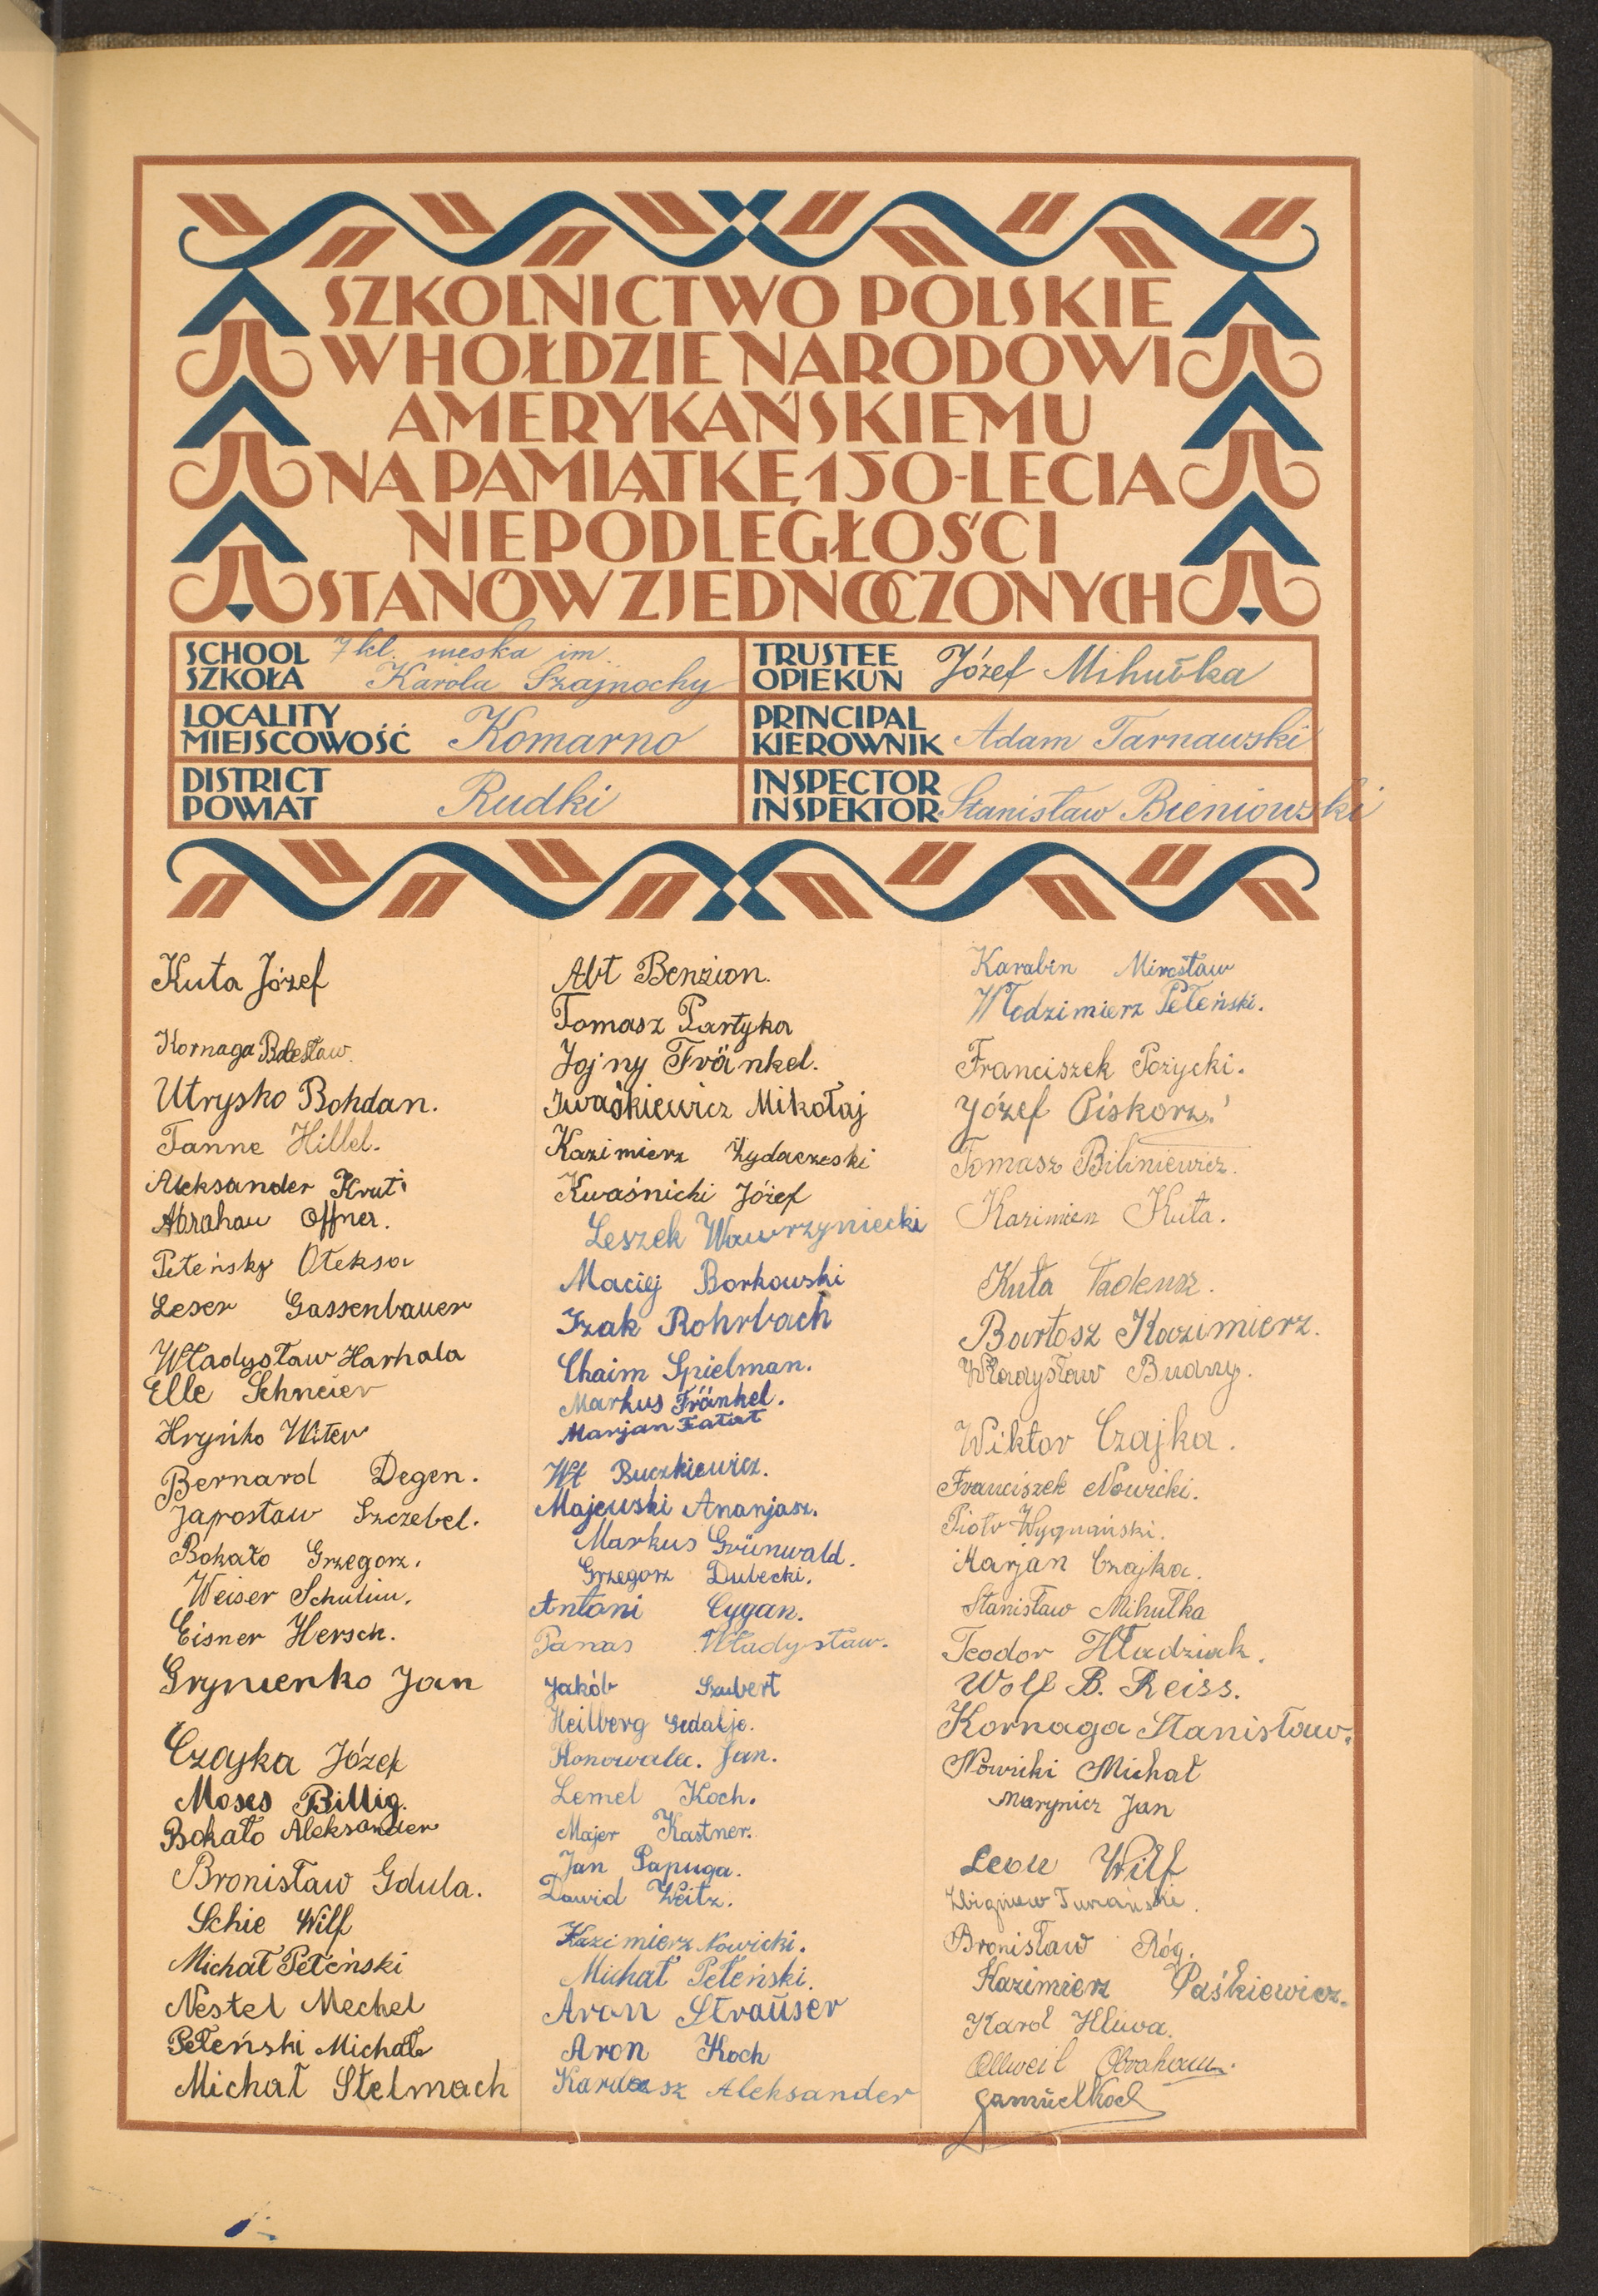 SZKOLNICTWO POLSKIE
W HOŁDZIE NARODOWI
AMERYKAŃSKIEMU
NA PAMIĄTKĘ 150-LECIA
NIEPODLEGŁOŚCI
STANÓW ZJEDNOCZONYCH
SCHOOL
SZKOŁA
7 kl. męska im.
Karola Szajnochy
TRUSTEE
OPIEKUN
Józef Mihułka
LOCALITY
MIEJSCOWOŚĆ
Komarno
PRINCIPAL
KIEROWNIK
Adam Tarnawski
DISTRICT
POWIAT
Rudki
INSPECTOR
INSPEKTOR
Stanisław Bieniowski
Kuta Józef
Kornaga Bolesław.
Utrysko Bohdan.
Tanne Hillel.
Aleksander Kruti
Abraham Offner.
Peteńsky Ołeksa
Leser Gassenbauer
Władysław Harhala
Elle Schneier
Hryńko Witer
Bernard Degen.
Jarosław Szczebel.
Bokało Grzegorz.
Weiser Schulim.
Eisner Hersch.
Grynienko Jan
Czajka Józef
Moses Billig.
Bokało Aleksander
Bronisław Gdula.
Schie Wilf
Michał Peteński
Nestel Mechel
Peteński Michał
Michał Stelmach
Abt Benzion.
Tomasz Partyka
Jojny Fränkel.
Iwaśkiewicz Mikołaj
Kazimierz Żydaczeski
Kwaśnicki Józef
Leszek Wawrzyniecki
Maciej Borkowski
Izak Rohrbach
Chaim Spielman.
Markus Fränkel.
Marjan Fatat
Wł Buczkiewicz.
Majewski Ananjasz.
Markus Grünwald.
Grzegorz Dubecki.
Antoni Cygan.
Panas Władysław.
Jakób Szubert
Heilberg Gedalje.
Konowalec. Jan.
Lemel Koch.
Majer Kastner.
Jan Papuga.
Dawid Weitz.
Kazimierz Nowicki.
Michał Peteński.
Aron Strauser
Aron Koch
Kardasz Aleksander
Karabin Mirosław
Włodzimierz Peteński.
Franciszek Pożycki.
Józef Piskorz.
Tomasz Biliniewicz.
Kazimierz Kuta.
Kuta Tadeusz.
Bartosz Kazimierz.
Władysław Budny.
Wiktor Czajka.
Franciszek Nowicki.
Piotr Wygnański.
Marjan Czajka.
Stanisław Mihułka
Teodor Hładziuk.
Wolf B. Reiss.
Kornaga Stanisław.
Nowicki Michał
Marynicz Jan
Leon Wilf
Zbigniew Turzański.
Bronisław Róg.
Kazimierz Paśkiewicz.
Karol Hliwa.
Ollweil Abraham.
Samuel Koch